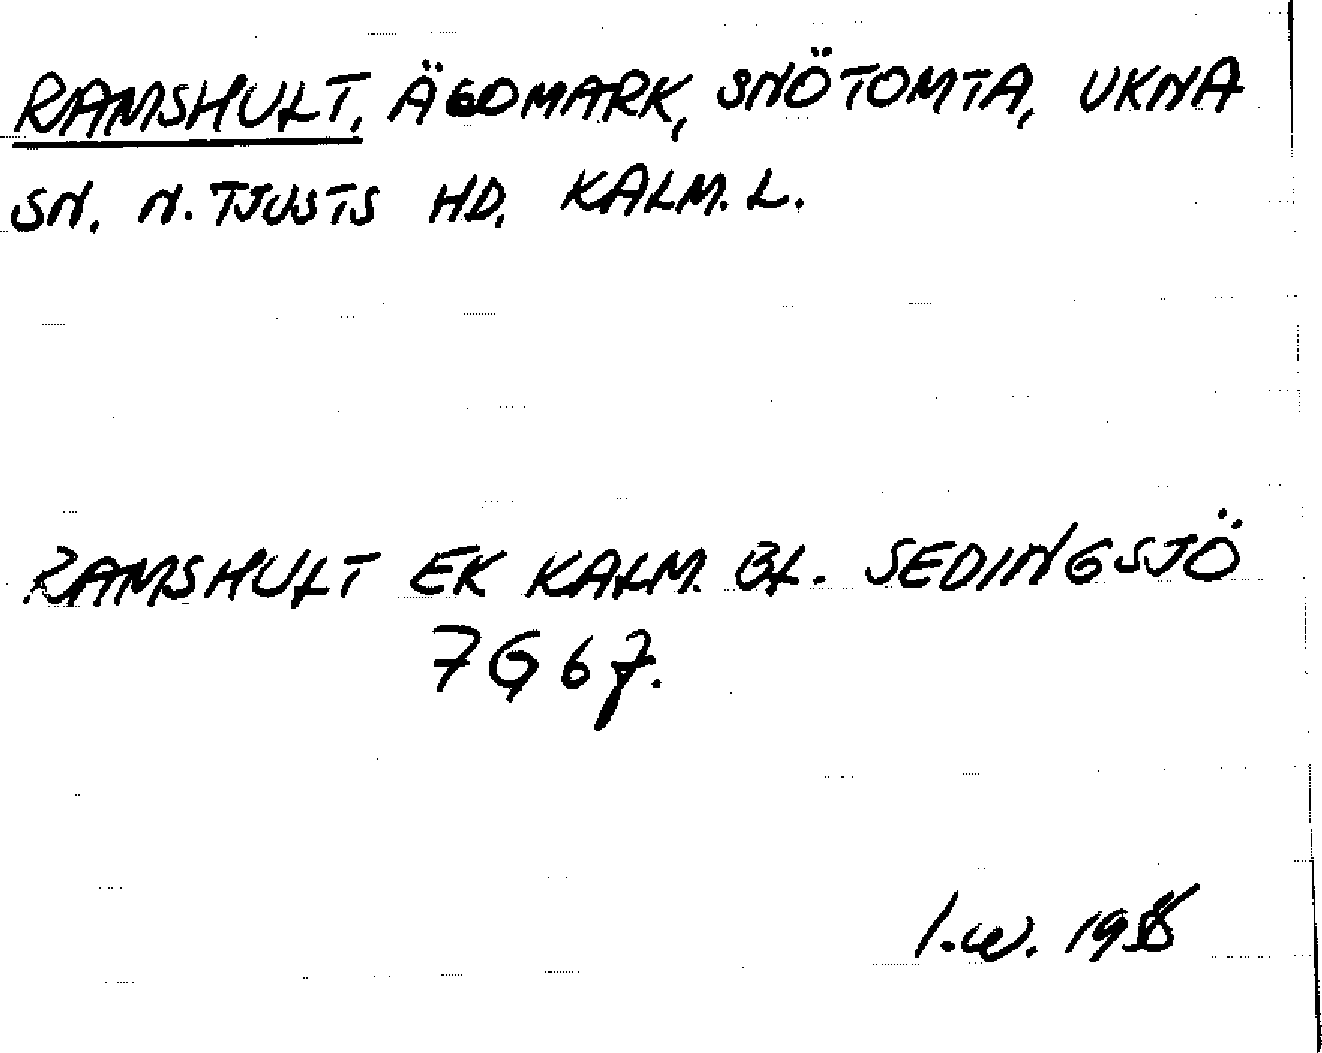 RAMSHULT, ÄGOMARK, SNÖTOMTA, UKNA
SN. N. TJUSTS HD. KALM. L.
RAMSHULT EK KALM. BL. SEDINGSJÖ
7G 6f.
I.W.